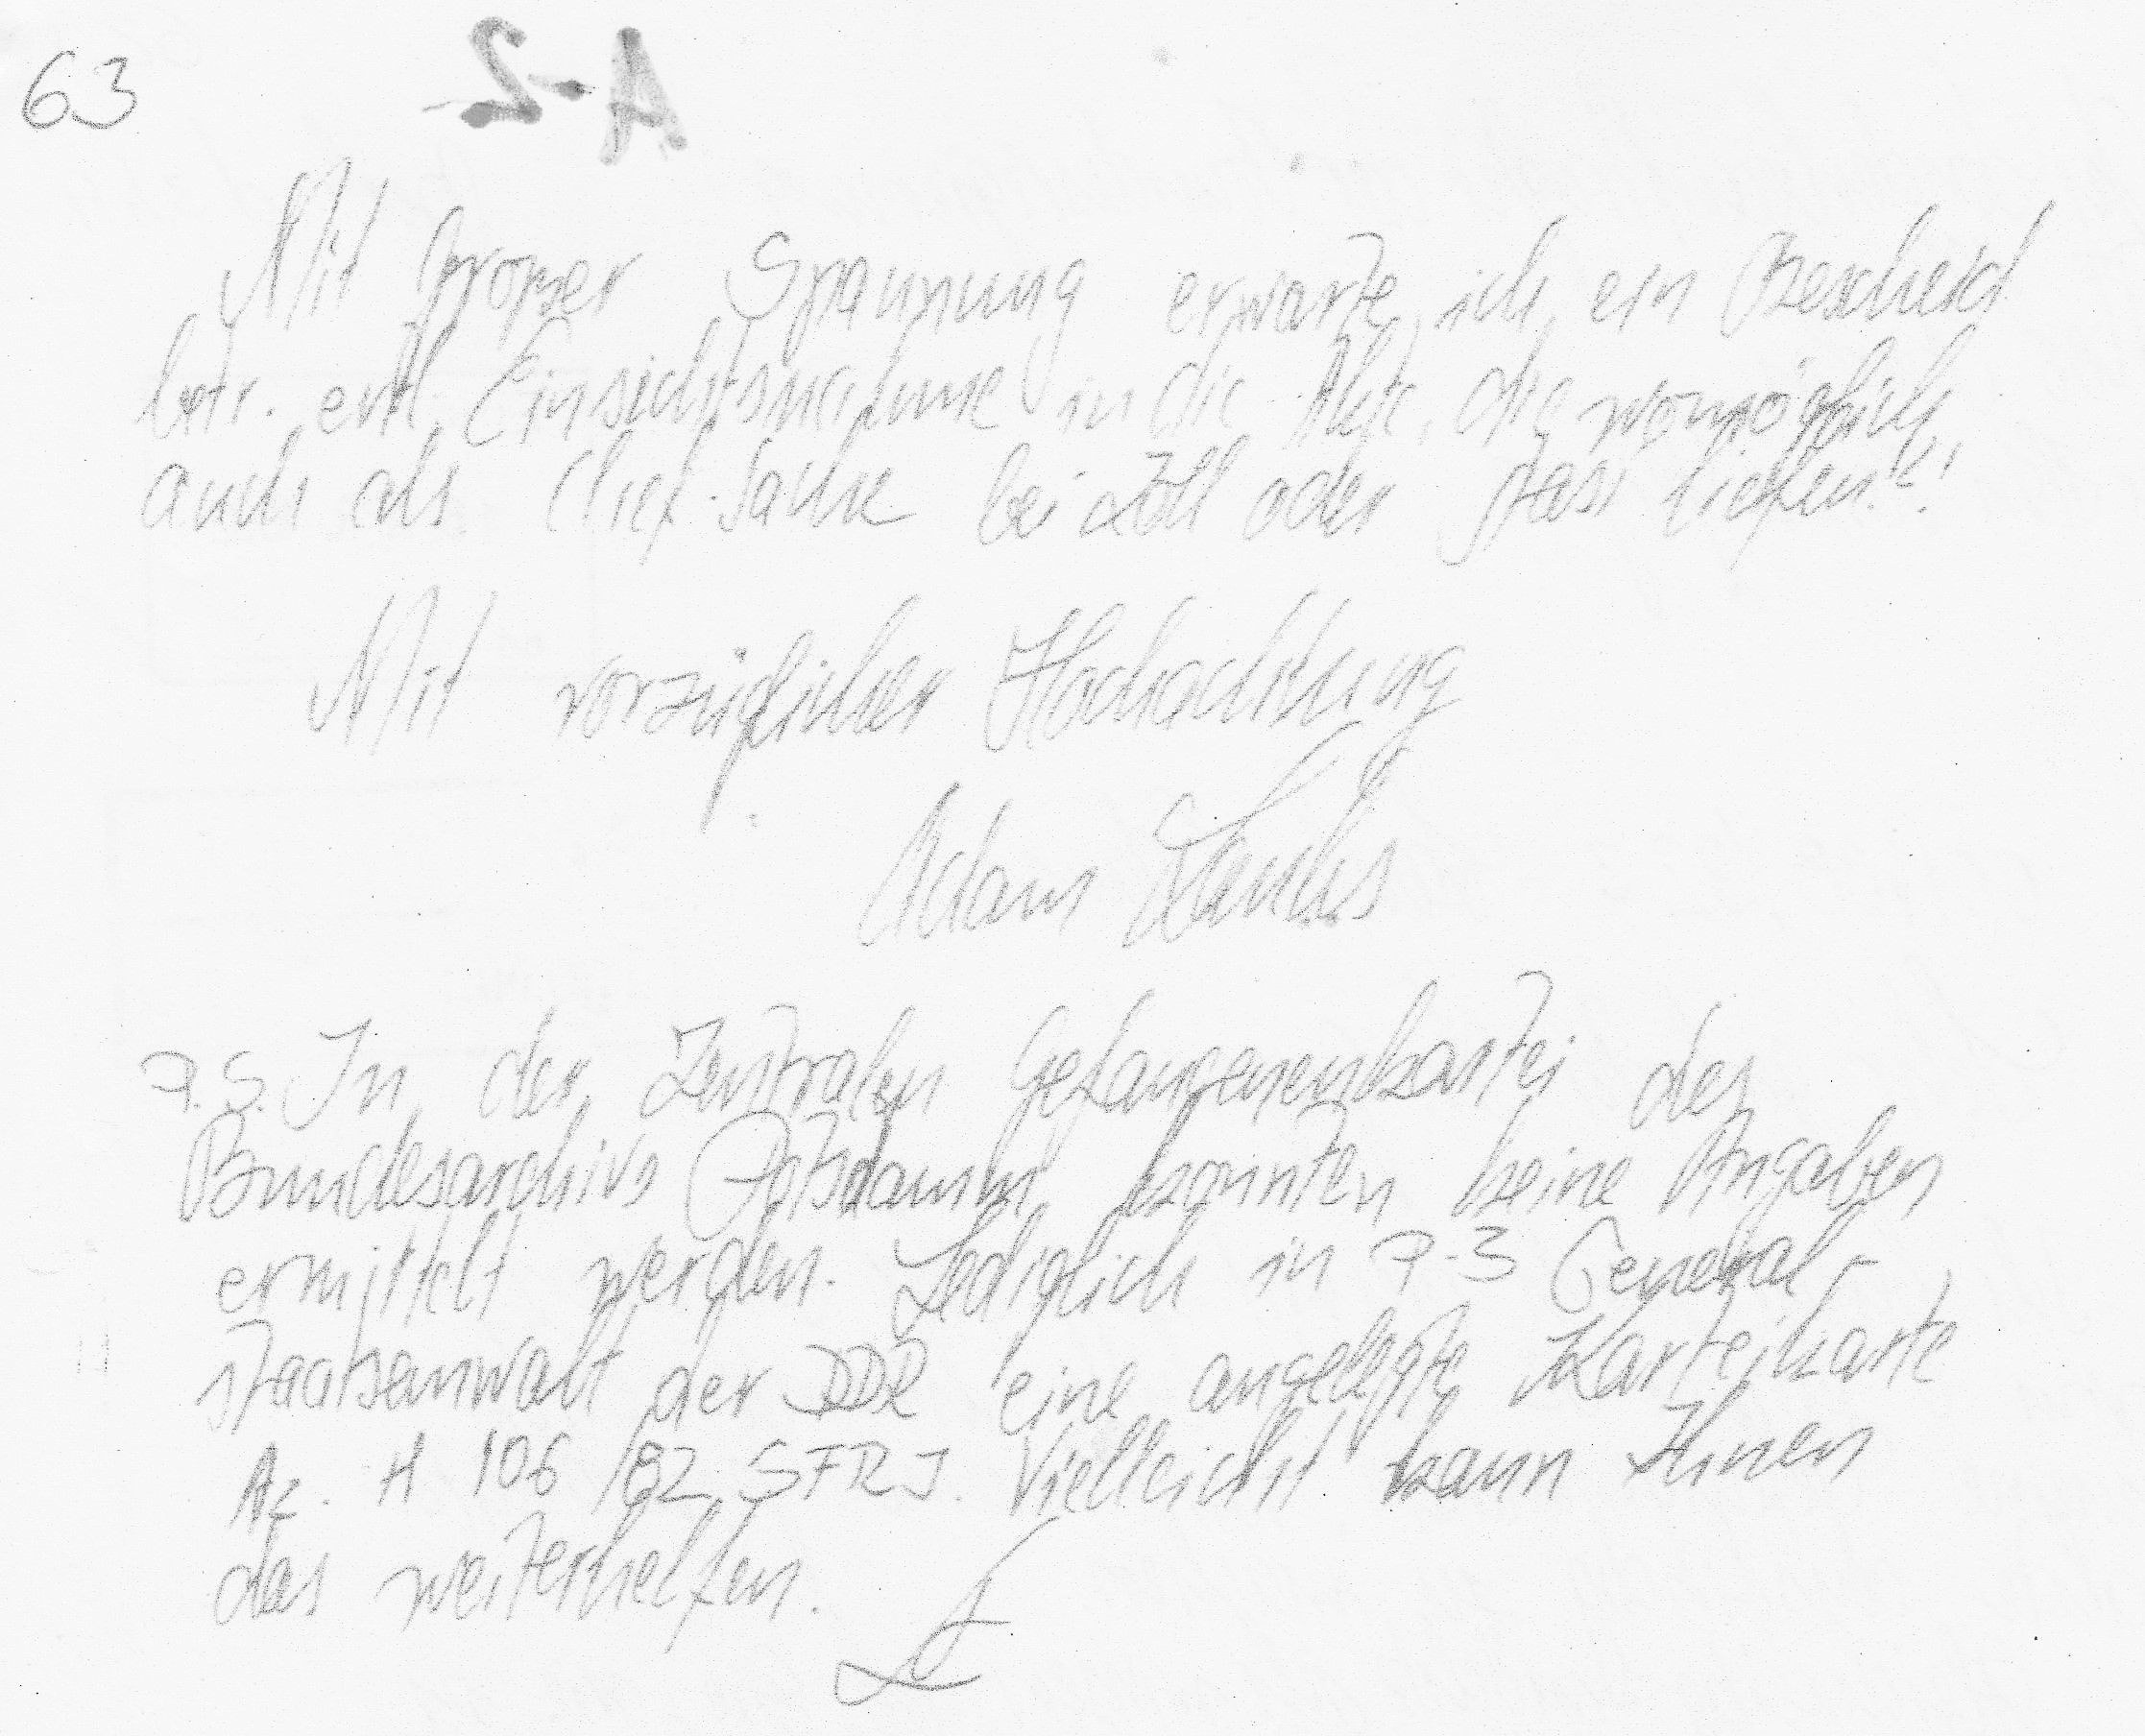 63 S-A
Mit großer Spannung erwarte ich ein Bescheid
betr. evtl. Einsichtsnahme in die Akte, die womöglich
auch als Chef-Sache bei Zoll oder Stasi liefen!
Mit vorzüglicher Hochachtung
Adam Lauks
P.S. In der Zentralen Gefangenenkartei des
Bundesarchivs Potsdamm konnten keine Angaben
ermittelt werden. Lediglich in P-3 General-
staatsanwalt der DDR eine angelegte Karteikarte
Az. H 106 /82 SFRJ. Vielleicht kann Ihnen
das weiterhelfen.